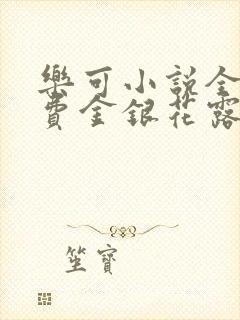 樂可小說全
費金銀花露
笙寶